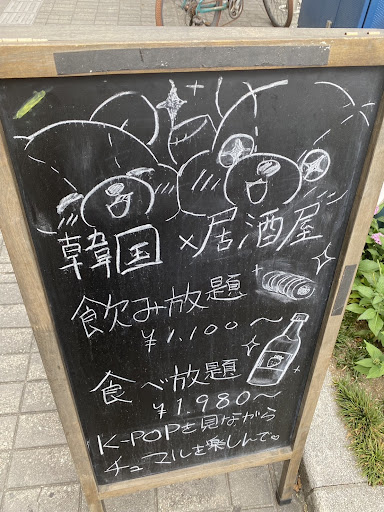 韓国×居酒屋
飲み放題
¥1.100～
食べ放題
¥1.980～
K-POPを見ながら
チュマルを楽しんで。